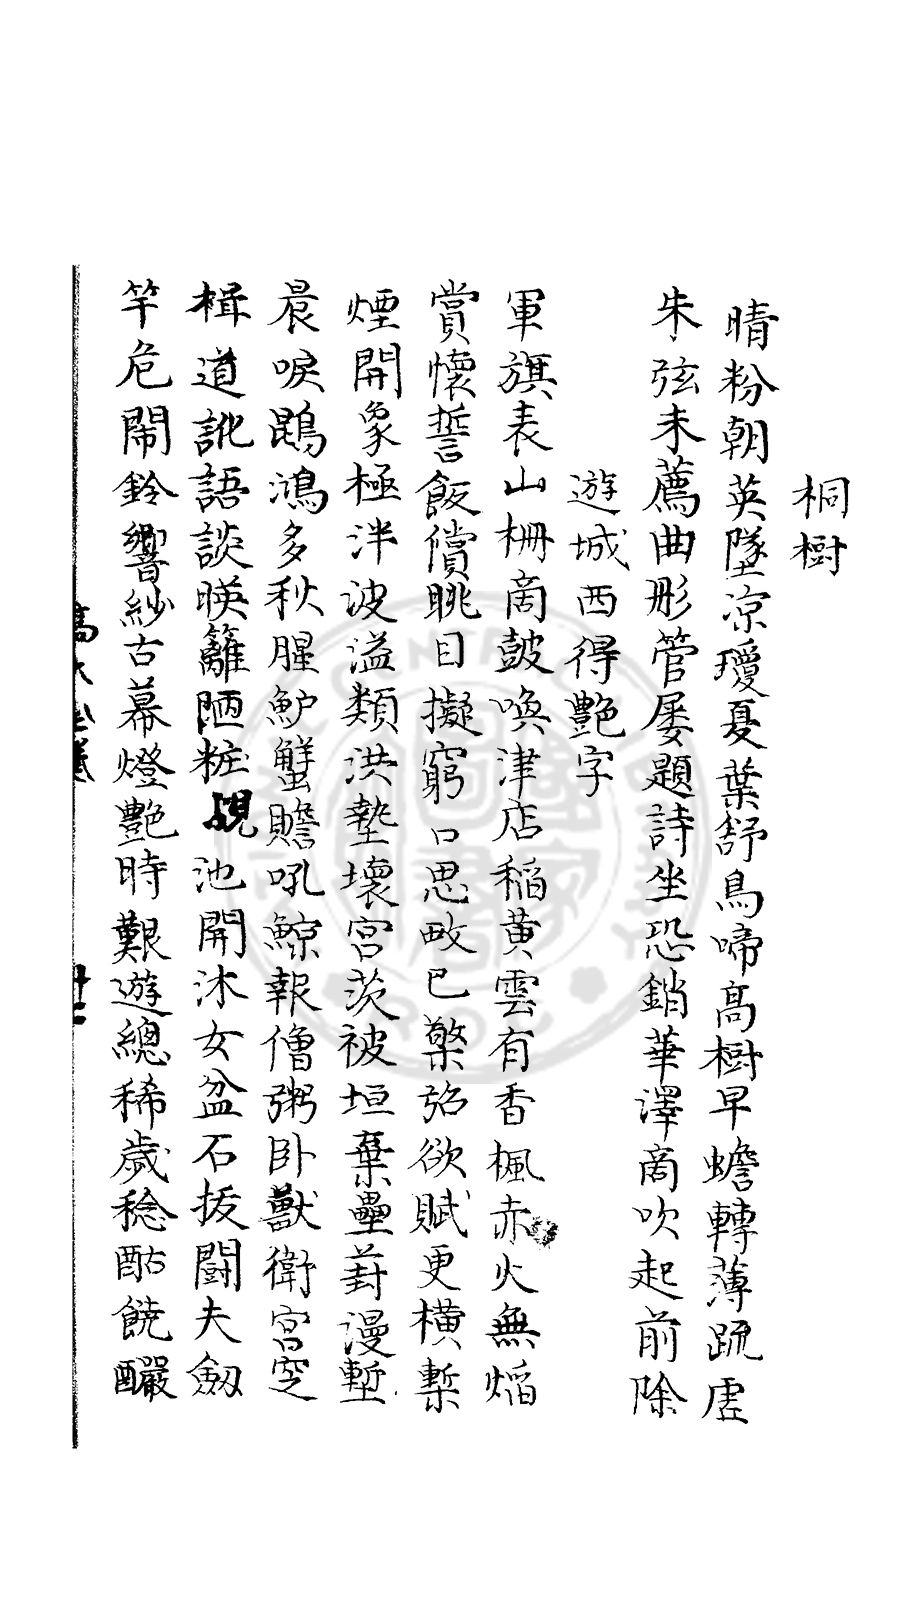 桐樹
晴粉朝英墜凉瓊夏葉舒鳥啼高樹早蟾轉薄疏虛
朱弦未薦曲彤管屡題詩坐恐銷華澤商吹起前除
遊城西得艷字
軍旗表山柵商鼓喚津店稲黄雲有香楓赤火無熖
賞懷誓飯償眺目擬窮口思畝已檠弨欲賦更橫槧
煙開象極泮波溢類洪墊壞宮茨被垣棄壘葑漫塹
晨唳鵾鴻多秋腥魲蟹贍吼鯨報僧粥卧獸衛宮空
楫道訛語談暎籬陋粧覘池開沐女盆石抜鬪夫劔
竿危鬧鈴響紗古幕燈艷時艱遊總稀歲稔酤饒釅